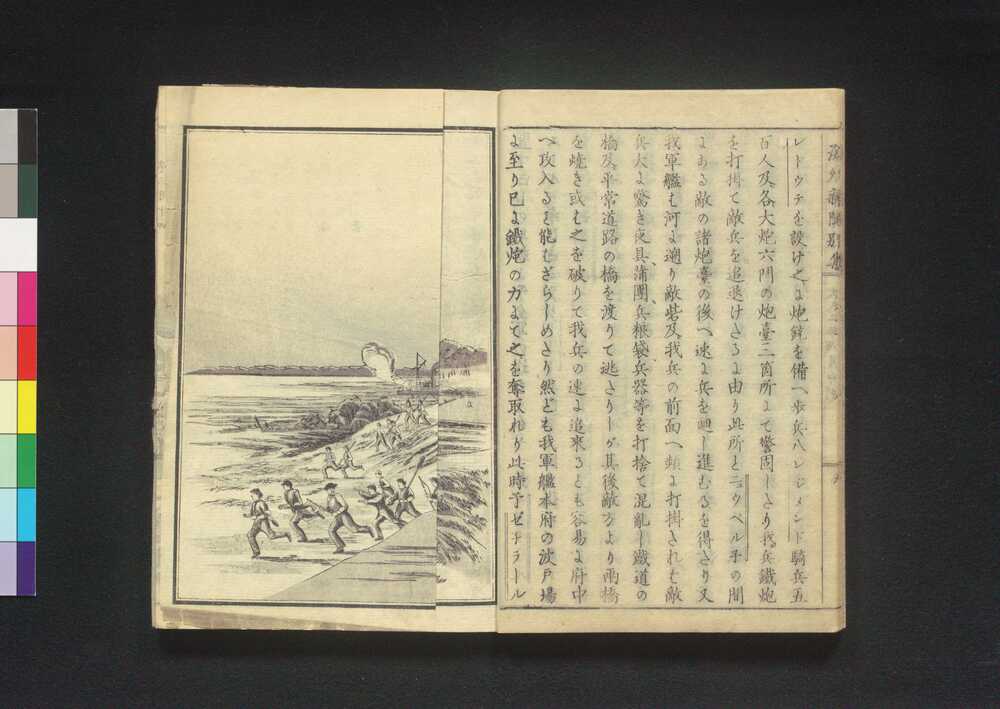 海外新聞別集
レドウテを設け之よ炮銃を備へ歩兵八レジメンド騎兵五
百人及各大炮六門の炮臺二箇所よて警固しさり我兵鐵炮
を打掛て敵兵を追退けさるよ由り此所とニウベル子の間
よある敵の諸炮臺の後へ速よ兵を廻し進むるを得さり又
我軍艦も河よ遡り敵砦及我兵の前面へ頻よ打掛されも敵
兵大よ驚き夜具蒲團兵粮袋兵器等を打捨て混亂し鐵道の
橋及平常道路の橋を渡りて逃さりしが其後敵方より兩橋
を燒き或も之を破りて我兵の速よ追來るとも容易よ府中
へ攻入るを能もざらしめさり然ども我軍艦本府の波戸場
よ至り已よ鐵炮の力よて之を奪取れり此時予ゼ子ラール